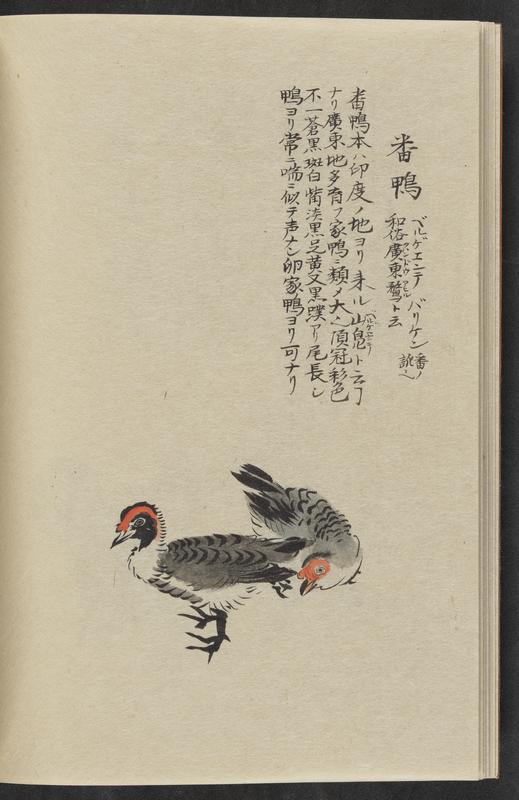 番鴨
ベルゲエンテ バリケン 番ノ訛也
和俗廣東鶩ト云
カントウアヒル
番鴨本ハ印度ノ地ヨリ来ル山鳧ト云フ
ベルゲエンテ
ナリ廣東地多有フ家鴨ニ類メ大也頂冠彩色
不一蒼黒斑白觜淡黒足黄又黒蹼アリ尾長シ
鴨ヨリ常ニ喘ニ似テ声ナシ卵家鴨ヨリ可ナリ